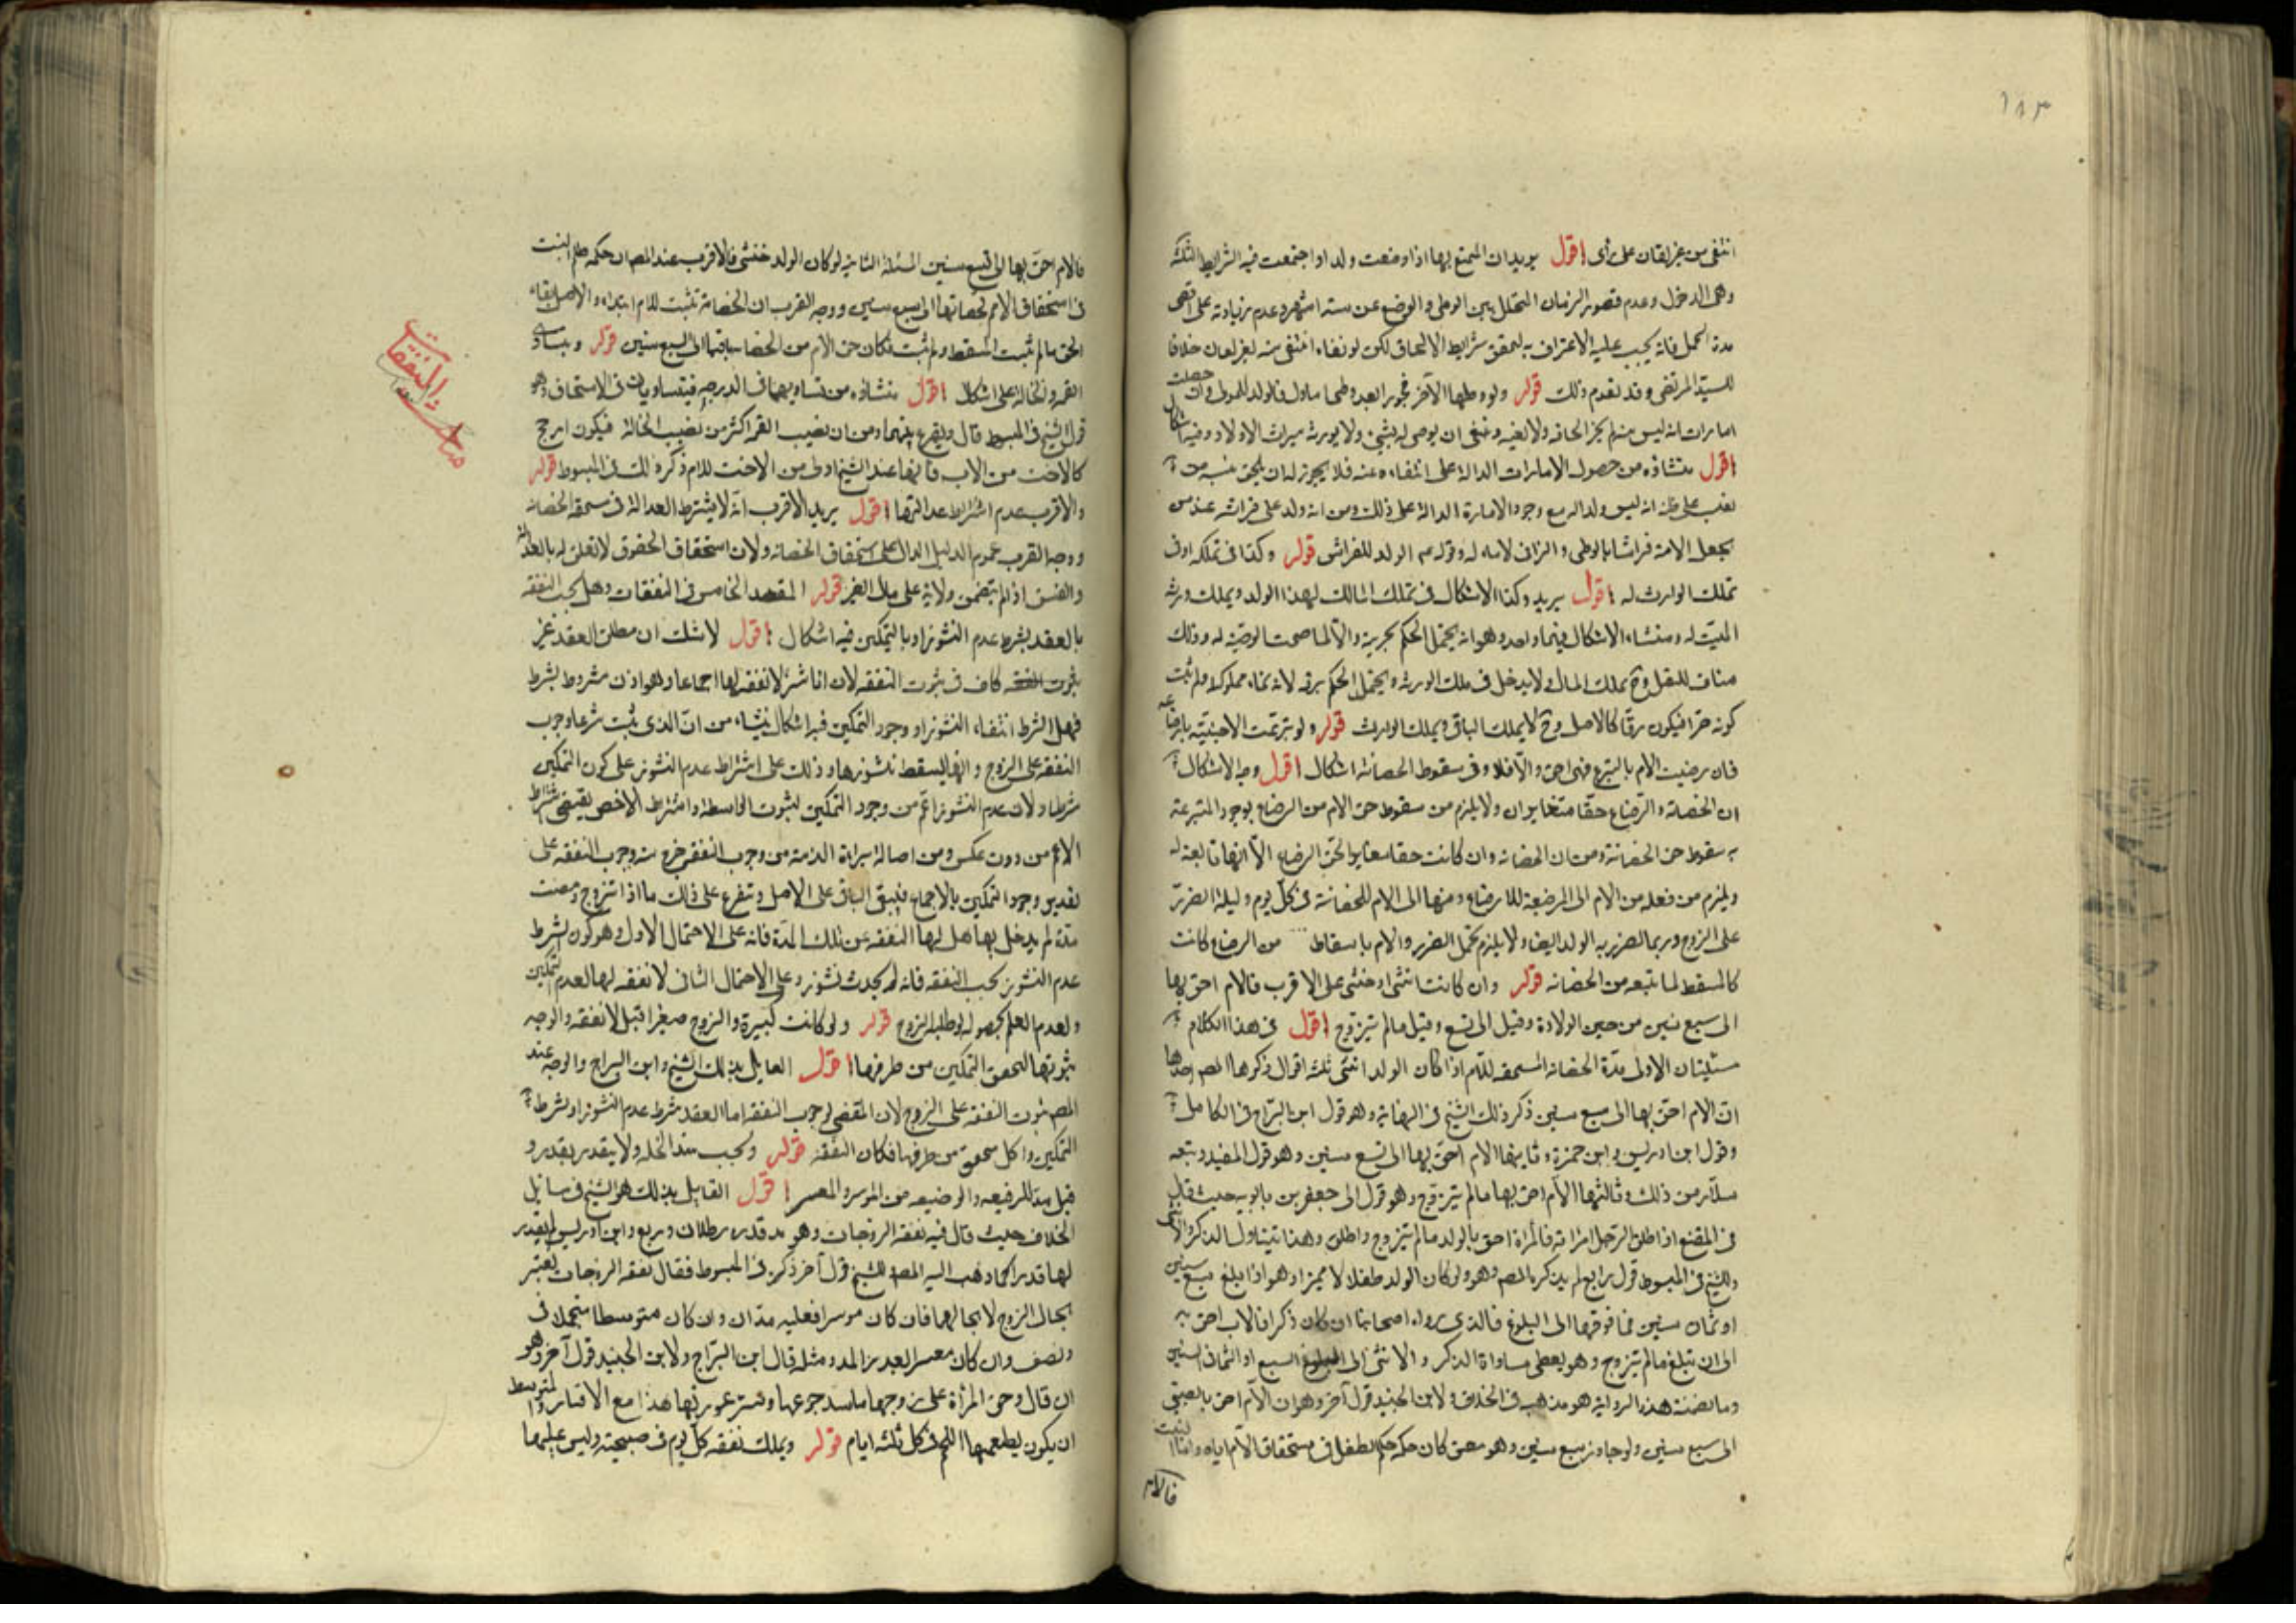 ١٨٣
انتفى من غير لعان على رأى اقول يريد ان المتمتع بها اذا وضعت ولدا واجتمعت فيه الشرايط الثلثة
وهى الدخول وعدم قصور الزمان المتخلل بين الوطى والوضع عن ستة اشهر وعدم زيادته على اقصى
مدة الحمل فانه يجب عليه الاعتراف به لتحقق شرايط الالحاق لكن لو نفاه انتفى منه لغير لعان خلافا
للسيد المرتضى وقد تقدم ذلك قوله ولو وطئها الآخر فجورا بعد وطى فالولد للمولى وان حصلت
امارات انه ليس منه لم يجز الحاقه ولا نفيه وينبغى ان يوصى له بشئ ولا يورثه ميراث الاولاد وفيه اشكال
اقول منشاؤه من حصول الامارات الدالة على انتفاءه عنه فلا يجوز له ان يلحق بنسبه من
يغلب على ظنه انه ليس ولدا له مع وجود الامارة الدالة على ذلك ومن انه ولد على فراشه عند من
يجعل الامة فراشا بالوطى والزانى لا ماء له وقوله عم الولد للفراش قوله وكذا فى تملكه او فى
تملك الوارث له اقول يريد وكذا الاشكال فى تملك المالك لهذا الولد ويملك ورثة
الميت له ومنشاء الاشكال فيهما واحد وهو انه يحتمل الحكم بحريته والا لما صحت الوصية له وذلك
مناف للنقل وح يملك المال ولا يدخل فى ملك الورثة ويحتمل الحكم برقه لانه نماء مملوكه ولم يثبت
كونه حرا فيكون رقا كالاصل وح لا يملك الباقى ويملك الوارث قوله ولو تبرعت الاجنبية بارضاعه
فان رضيت الام بالتبرع فهى احق والا فلا وفى سقوط الحضانة اشكال اقول وجه الاشكال
ان الحضانة والرضاع حقان متغايران ولا يلزم من سقوط حق الام من الرضاع بوجود المتبرعة
به سقوط حق الحضانة ومن ان الحضانة وان كانت حقا مغايرا لحق الرضاع الا انها تابعة له
ويلزم من فعله من الام الى المرضعة للارضاع ومنها الى الام للحضانة فى كل يوم وليلة الضرر
على الزوج وربما الضرر به الولد ايضا ولا يلزم تحمل الضرر والام باسقاط من الرضاع كانت
كالمسقط لما تتبعه من الحضانة قوله وان كانت انثى او خنثى على الاقرب فالام احق بها
الى سبع سنين من حين الولادة وقيل الى تسع وقيل ما لم تتزوج اقول فى هذا الكلام
مسئلتان الاولى مدة الحضانة المستحقة للام اذا كان الولد انثى ثلثة اقوال ذكرها المصـ احدها
ان الام احق بها الى سبع سنين ذكر ذلك الشيخ فى النهاية وهو قول ابن البراج فى الكامل
وقول ابن ادريس وابن حمزة وثانيها الام احق بها الى تسع سنين وهو قول المفيد وتبعه
سلار من ذلك وثالثها الام احق بها ما لم تتزوج وهو قول ابى جعفر بن بابويه حيث قال
فى المقنع اذا طلق الرجل امراته فالمرأة احق بالولد ما لم تتزوج واطلق وهذا يتناول الذكر والانثى
وللشيخ فى المبسوط قول رابع لم يذكره المصـ وهو ولو كان الولد طفلا لا مميزا وهو اذا بلغ سبع سنين
او ثمان سنين فما فوقها الى البلوغ فالذى رواه اصحابنا ان كان ذكرا فالاب احق به
الى ان تبلغ ما لم تتزوج وهو يعطى مساواة الذكر والانثى الى السبع او الثمان السنين
وما تضمنته هذه الرواية هو مذهبه فى الخلاف ولابن الجنيد قول آخر وهو ان الام احق بالصبى
الى سبع سنين ولو جاوز سبع سنين وهو معتق كان حكمه حكم الطفل فى استحقاق الام اياه واما البنت
فالام
فالام احق بها الى تسع سنين المسئلة الثانية لو كان الولد خنثى فالاقرب عند المصـ ان حكمه حكم البنت
فى استحقاق الام لحضانتها الى سبع سنين ووجه القرب ان الحضانة تثبت للام ابتداء والاصل بقاء
الحق ما لم يثبت المسقط ولم يثبت فكان حق الام من الحضانة باقيا الى السبع سنين قوله ويتساوى
العمة والخالة على اشكال اقول منشاؤه من تساويهما فى الدرجة فيتساويان فى الاستحقاق وهو
قول الشيخ فى المبسوط قال ويقرع بينهما ومن ان نصيب العمة اكثر من نصيب الخالة فيكون ارجح
كالاخت من الاب فانها عند الشيخ اولى من الاخت للام ذكر ذلك فى المبسوط قوله
والاقرب عدم اشتراط عدالتها اقول يريد الاقرب انه لا يشترط العدالة فى مستحقه الحضانة
ووجه القرب عموم الدليل الدال على استحقاق الحضانة ولان استحقاق الحقوق لا تعلق له بالعدالة
والفسق اذا لم يتضمن ولاية على مال الغير قوله المقصد الخامس فى النفقات وهل تجب النفقة
بالعقد بشرط عدم النشوز او بالتمكين فيه اشكال اقول لا شك ان مطلق العقد غير
كاف فى ثبوت النفقة لان الناشز لا نفقة لها اجماعا وهو اذن مشروط بشرط
فهل الشرط انتفاء النشوز او وجود التمكين فيه اشكال ينشاء من ان الذى ثبت شرعا وجوب
النفقة على الزوج وانها تسقط بنشوزها وذلك على اشتراط عدم النشوز على كون التمكين
شرطا ولان عدم النشوز اعم من وجود التمكين لثبوت الواسطة واشتراط الاخص يقتضى اشتراط
الاعم من دون عكس ومن اصالة براءة الذمة من وجوب النفقة خرج منه وجوب النفقة على
تقدير وجود التمكين بالاجماع فيبقى الباقى على الاصل وتفرع على ذلك ما اذا تزوج ومضت
مدة لم يدخل بها هل لها النفقة عن تلك المدة فانه على الاحتمال الاول وهو كون الشرط
عدم النشوز تجب النفقة فانه لم يحدث نشوز وعلى الاحتمال الثانى لا نفقة لها لعدم التمكين
ولعدم العلم بحصوله لو طلبه الزوج قوله ولو كانت كبيرة والزوج صغيرا قيل لا نفقة والوجه
ثبوتها لتحقق التمكين من طرفها اقول القايل بذلك الشيخ وابن البراج والوجه عند
المصـ ثبوت النفقة على الزوج لان المقتضى لوجوب النفقة اما العقد بشرط عدم النشوز او بشرط
التمكين واكل متحقق من طرفها فكان النفقة قوله وتجب سد الخلة ولا يتقدر بقدر و
قيل مد للرفيعة والوضيعة من الموسر والمعسر اقول القايل بذلك هو الشيخ فى مسائل
الخلاف حيث قال فيه نفقة الزوجات وهو مد قدره رطلان وربع وابن ادريس لم يقدر
لها قدرا كما ذهب اليه المصـ للشيخ قول آخر ذكره فى المبسوط فقال نفقة الزوجات تعتبر
بحال الزوج لا بحالها فان كان موسرا فعليه مدان وان كان متوسطا متجملا مد
ونصف وان كان معسرا لعدم المد ومثله قال ابن البراج ولابن الجنيد قول آخر وهو
ان قال وحق المرأة على زوجها ما سد جوعها وستر عورتها هذا مع الاقتار والمتوسط
ان يكون يطعمها اللحم فى كل ثلثة ايام قوله ويملك نفقة كل يوم فى صبيحته وليس عليها
النفقات